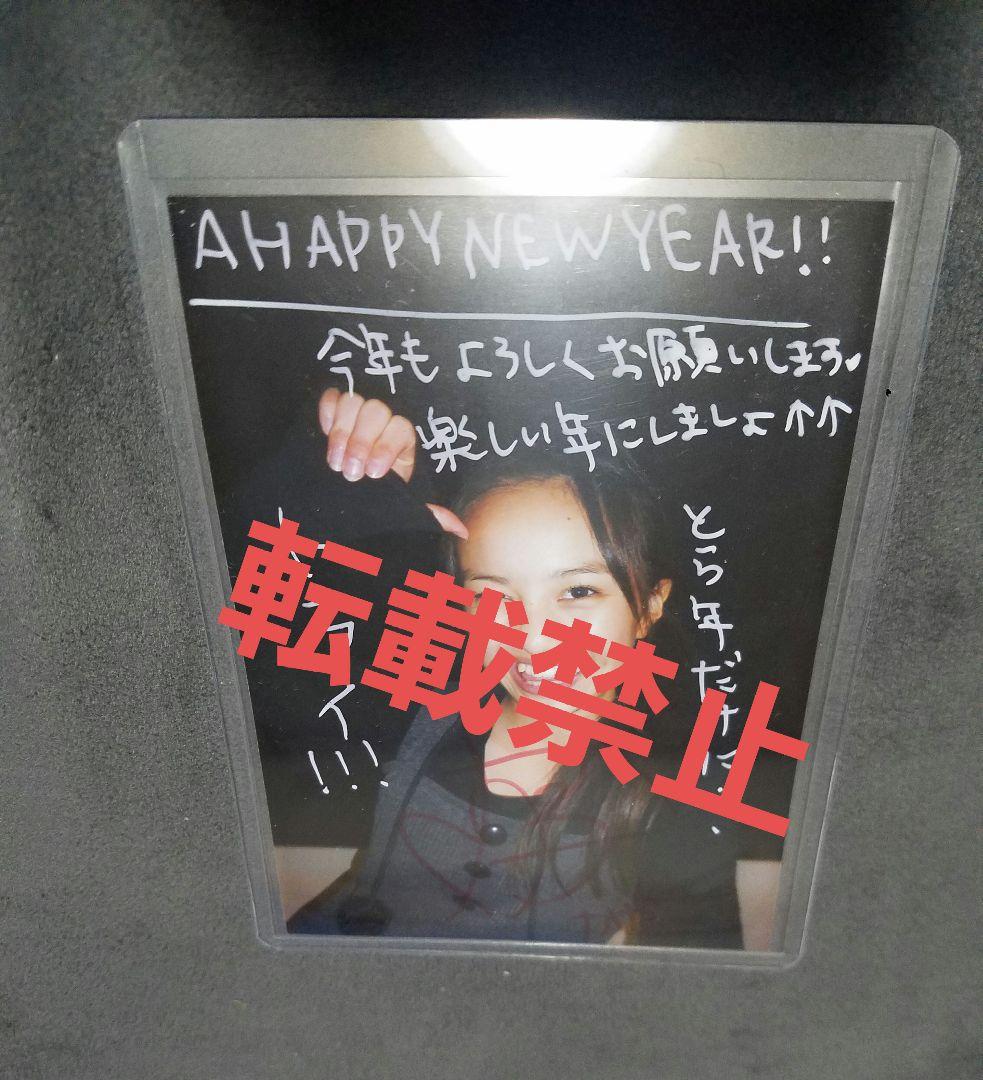 A HAPPY NEW YEAR!!
今年もよろしくお願いします♥
楽しい年にしましょ↑↑
とら年だけに...
イ!!!
転載禁止